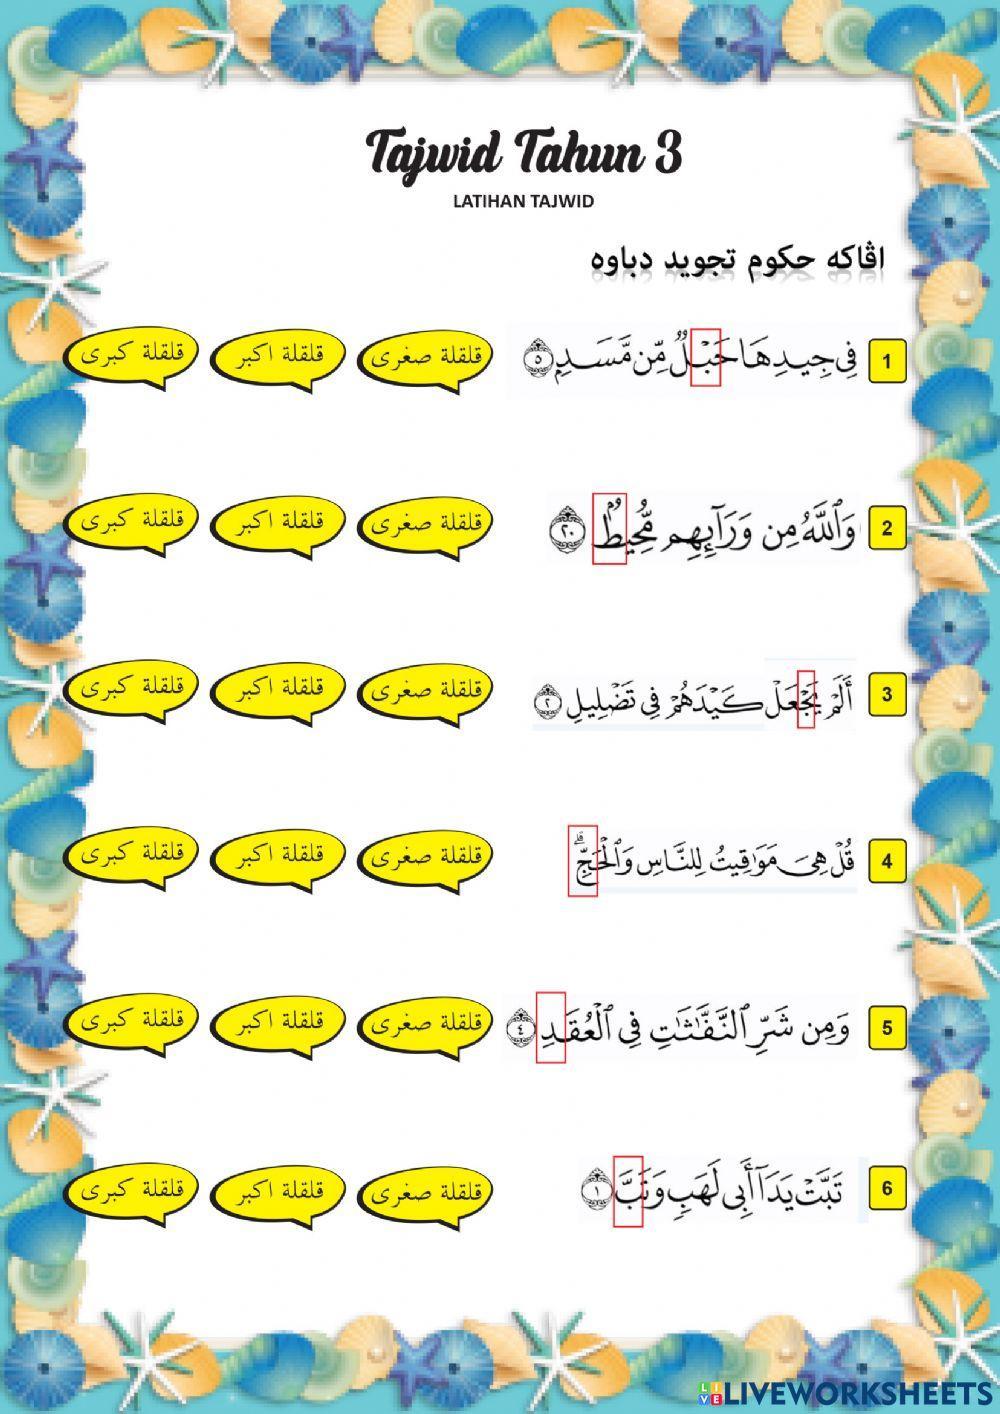 Tajwid Tahun 3
LATIHAN TAJWID
اڤاكه حكوم تجويد دباوه
1 فِي جِيدِهَا حَبْلٌ مِّن مَّسَدٍ ٥ قلقلة صغرى قلقلة اكبر قلقلة كبرى
2 وَٱللَّهُ مِن وَرَآئِهِم مُّحِيطٌ ٢٠ قلقلة صغرى قلقلة اكبر قلقلة كبرى
3 أَلَمْ يَجْعَلْ كَيْدَهُمْ فِي تَضْلِيلٍ ٢ قلقلة صغرى قلقلة اكبر قلقلة كبرى
4 قُلْ هِيَ مَوَٰقِيتُ لِلنَّاسِ وَٱلْحَجِّ ۗ قلقلة صغرى قلقلة اكبر قلقلة كبرى
5 وَمِن شَرِّ ٱلنَّفَّٰثَٰتِ فِي ٱلْعُقَدِ ٤ قلقلة صغرى قلقلة اكبر قلقلة كبرى
6 تَبَّتْ يَدَآ أَبِي لَهَبٍ وَتَبَّ ١ قلقلة صغرى قلقلة اكبر قلقلة كبرى
LIVE LIVEWORKSHEETS